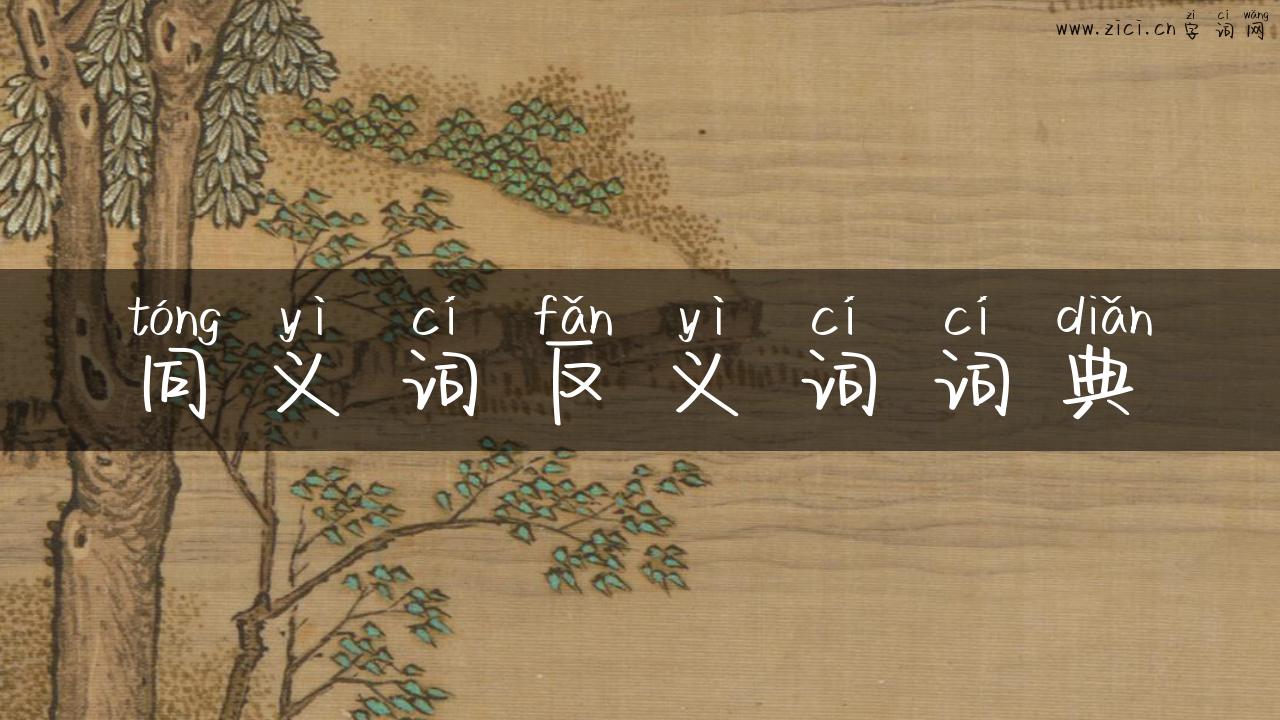 zì cí wǎng
www.zici.cn 字词网
tóng yì cí fǎn yì cí cí diǎn
同义词反义词词典